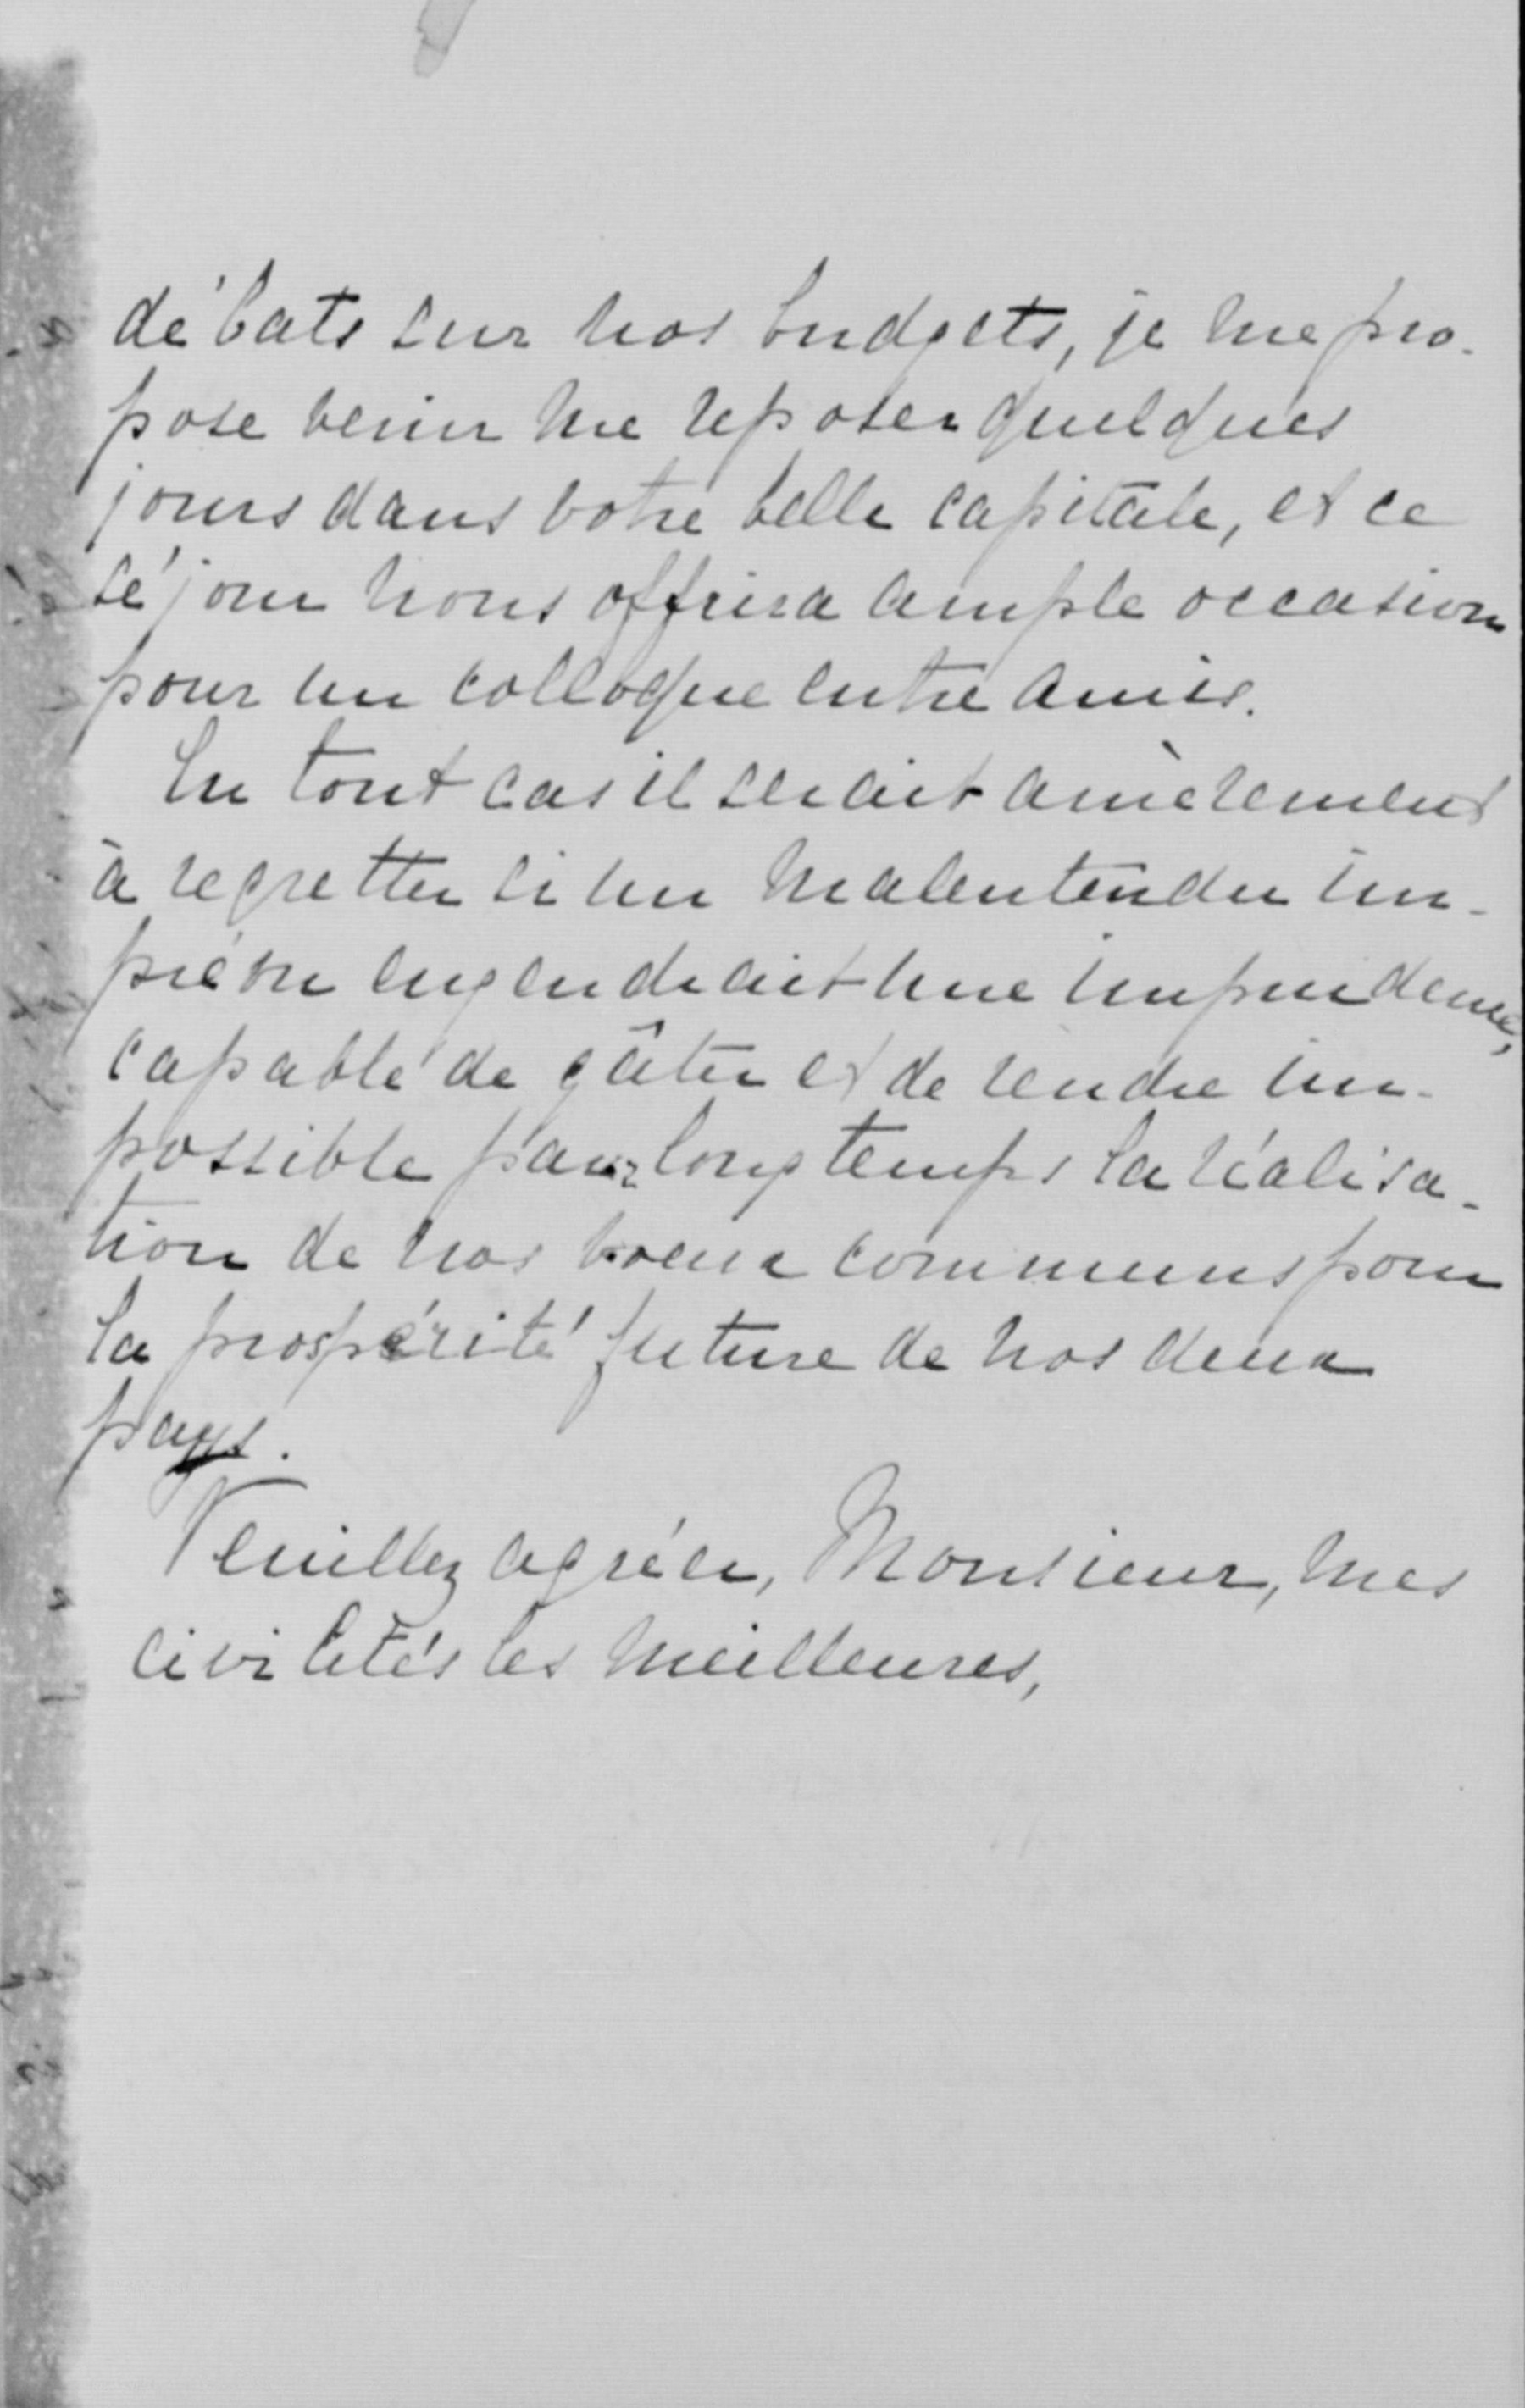 débats sur nos budgets, je me pro-
pose venir me reposer quelques
jours dans votre belle capitale, et ce
séjour nous offrira ample occasion
pour un colloque entre amis.
En tout cas il serait amèrement
à regretter si un malentendu im-
prévu engendrait une imprudence,
capable de gâter et de rendre im-
possible pour longtemps la réalisa-
tion de nos voeux communs pour
la prospérité future de nos deux
pays.
Veuillez agréer, Monsieur, mes
civilités les meilleures,